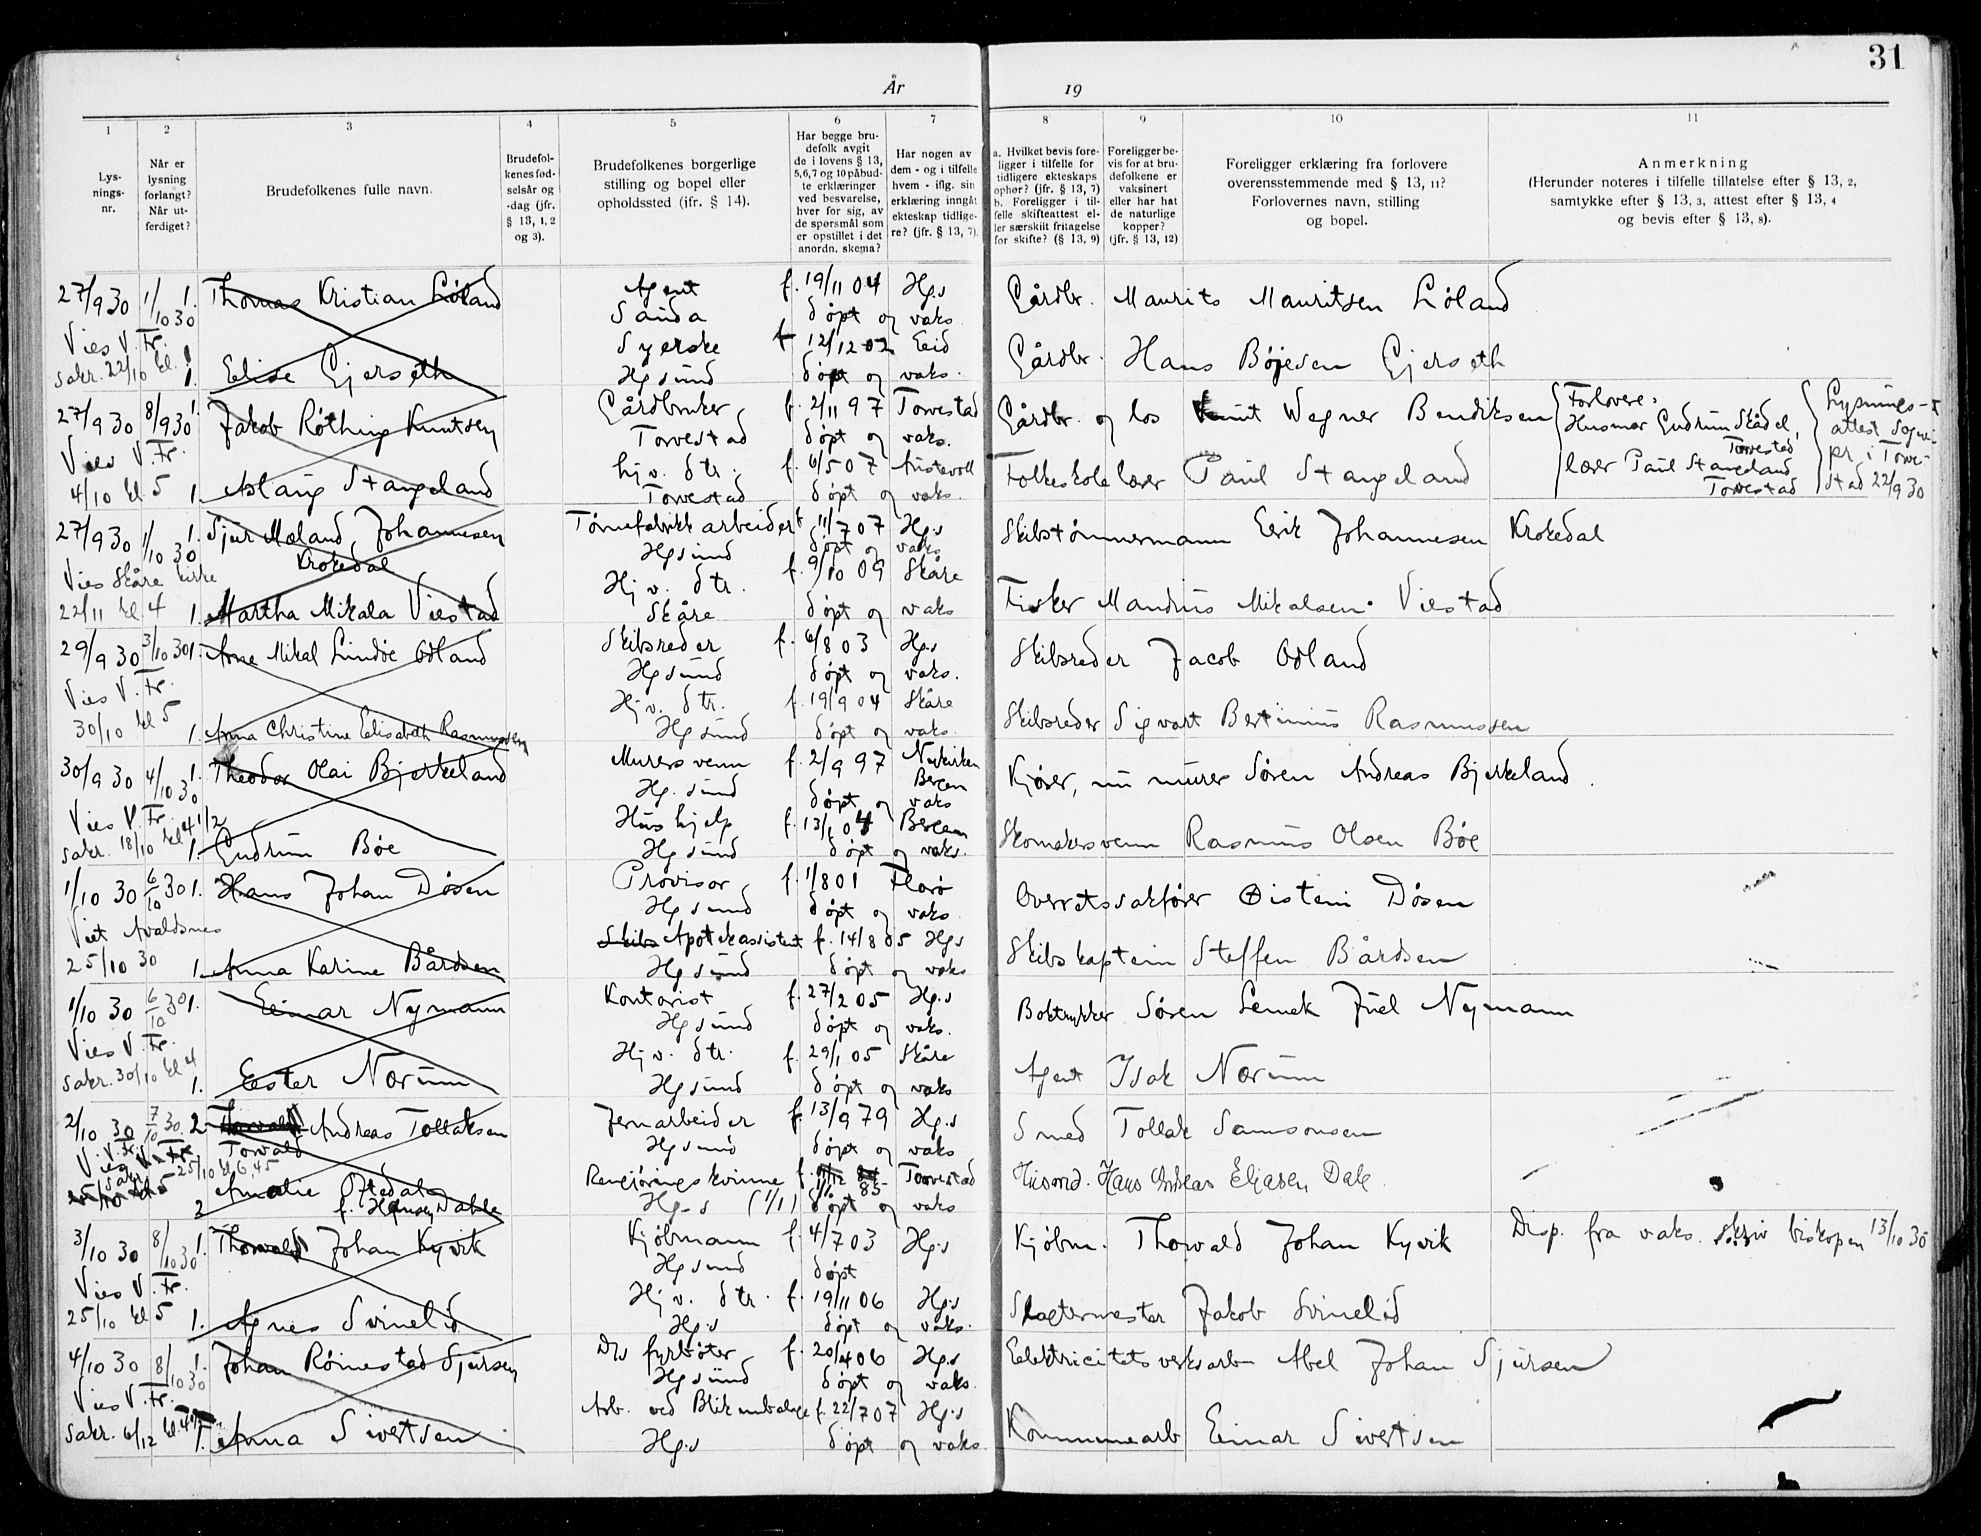 31
År
19
1
2
3
4
5
6
7
8
9
10
11
Lys-
nings-
nr.
Når er
lysning
forlangt?
Når ut-
ferdiget?
Brudefolkenes fulle navn.
Brudefol-
kenes fød-
selsår og
-dag (jfr.
§ 13, 1, 2
og 3).
Brudefolkenes borgerlige
stilling og bopel eller
opholdssted (jfr. § 14).
Har begge bru-
defolk avgit
de i lovens § 13,
5, 6, 7 og 10 påbud-
te erklæringer
ved besvarelse,
hver for sig, av
de spørsmål som
er opstillet i det
anordn. skema?
Har nogen av
dem - og i tilfelle
hvem - iflg. sin
erklæring inngåt
ekteskap tidlige-
re? (jfr. § 13, 7).
a. Hvilket bevis fore-
ligger i tilfelle for
tidligere ekteskaps
ophør? (jfr. § 13, 7)
b. Foreligger i til-
felle skifteattest el-
ler særskilt fritagelse
for skifte? (§ 13, 9)
Foreligger be-
vis for at bru-
defolkene er
vaksinert
eller har hat
de naturlige
kopper?
(jfr. § 13, 12)
Foreligger erklæring fra forlovere
overensstemmende med § 13, 11?
Forlovernes navn, stilling
og bopel.
Anmerkning
(Herunder noteres i tilfelle tillatelse efter § 13, 2,
samtykke efter § 13, 3, attest efter § 13, 4
og bevis efter § 13, 8).
27/9 30 1/10 30 1. Thomas Kristian Løland Agent f. 19/11 04 Hg.s Gårdbr. Maurits Mauritsen Løland
Sauda døpt og vaks.
Vies V. Fr. Syerske f 12/12 02 Eid Gårdbr. Hans Bøjesen Gjerseth
sakr. 22/10 kl. 1. Elise Gjerseth Hgsund døpt og vaks.
27/9 30 8/9 30 1. Jakob Røthing Knutsen Gårdbruker f. 2/11 97 Torvestad Gårdbr. og los Knut Wegner Bendiksen
Forlovere:
Husmor Gudrun Skådel,
Torvestad
lærer Paul Stangeland
Torvestad
Lysnings-
attest Sogne-
pr. i Torve-
stad 22/9 30
Torvestad døpt og vaks.
Vies V. Fr. hjv. dtr. f. 6/5 07 Folkeskolelærer Paul Stangeland
4/10 kl 5 1. Aslaug Stangeland Torvestad døpt og vaks.
27/9 30 1/10 30 1. Sjur Mæland, Johannesen Tønnefabrikkarbeider f 11/7 07 Hg.s Skibstømmermann Eerik Johannesen Krokedal
Krokedal Hgsund døpt og vaks
Vies Skåre kirke Hjv. dtr. f. 9/10 09 Skåre
22/11 kl 4 1. Martha Mikala Viestad Skåre døpt og vaks Fisker Maudius Mikalsen Viestad
29/9 30 3/10 30 1. Arne Mikal Lindøe Odland Skibsreder f. 6/8 03 Hg.s Skibsreder Jacob Odland
Hgsund døpt og vaks.
Vies V. Fr. Hjv. dtr. f. 19/9 04 Skåre
30/10 kl 5 1. Anna Christine Elisabeth Rasmussen Hgsund døpt og vaks. Skibsreder Sigvart Bertinius Rasmussen
30/9 30 4/10 30 1. Theodor Olai Bjerkeland Murersvenn f. 2/9 97 Nykirken Bergen Kjører, nu murer Søren Andreas Bjerkeland.
Hg.sund døpt og vaks
Vies V. Fr. Hushjelp f. 13/1 04 Bergen
sakr. 18/10 kl 4 1/2 1. Gudrun Bøe Hgsund døpt og vaks. Skomakersvenn Rasmus Olsen Bøe
1/10 30 6/10 30 1. Hans Johan Døsen Provisor f. 1/8 01 Florø Overretssakfører Øistein Døsen
Hgsund døpt og vaks.
Viet Avaldsnes Skibs Apotekassistent f. 14/8 05 Hgs Skibskaptein Steffen Bårdsen
25/10 30 1. Anna Karine Bårdsen Hgsund døpt og vaks
1/10 30 6/10 30 1. Einar Nymann Kontorist f. 27/2 05 Hg.s Boktrykker Søren Lemek Juel Nymann
Hgsund døpt og vaks.
Vies V. Fr. Hjv. dtr. f. 29/1 05 Skåre Agent Isak Nærum
sakr. 30/10 kl 4 1. Eester Nærum Hgsund døpt og vaks
2/10 30 7/10 30. 2 Torvald Andreas Tollaksen Jernarbeider f. 13/9 79 Hg.s Smed Tollak Samsonsen
Torvald Hgsund døpt og vaks
Vies V. Fr. sakr. 25/10 kl. 6,45 Rengjøringskvinne f. 85 Torvestad Husmd. Hans Andreas Eljasen Dale
2 Amalie Oftedal f. Hansen Dahle Hg-s (1/1) døpt og vaks
3/10 30 8/10 30 1. Thorvald Johan Kyvik Kjøbmann f. 4/7 03 Hg.s Kjøbm. Thorvald Johan Kyvik Disp. fra vaks. skriv biskopen 13/10 30
Hgsund døpt
Vies V. Fr. Hjv. dtr. f. 19/11 06 Hg.s
25/10 kl 5 1. Agnes Svinelid Hg.s døpt og vaks. Slagtermester Jakob Svinelid
4/10 30 8/10 30 1. Johan Røinestad Sjursen D/s fyrbøter f. 20/4 06 Hg.s Eelektricitetsverksarb Abel Johan Sjursen
Hgsund døpt og vaks.
Vies V. Fr. Arb. ved Blikemballage f. 22/7 07 Hg.s
sakr. 6/12 kl. 1. Anna Sivertsen Hg.s døpt og vaks Kommunearb Einar Sivertsen